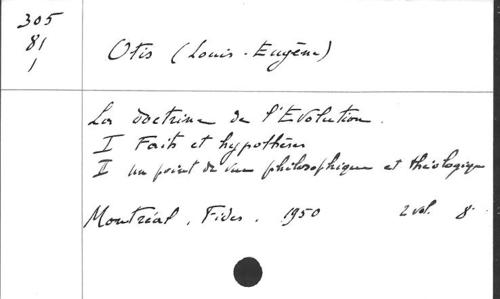 305
81
1
Otis (Louis-Eugène)
La doctrine de l'Evolution.
I Faits et hypothèses
II un point de vue philosophique et théologique
Montréal, Fides, 1950 2 vol. 8°